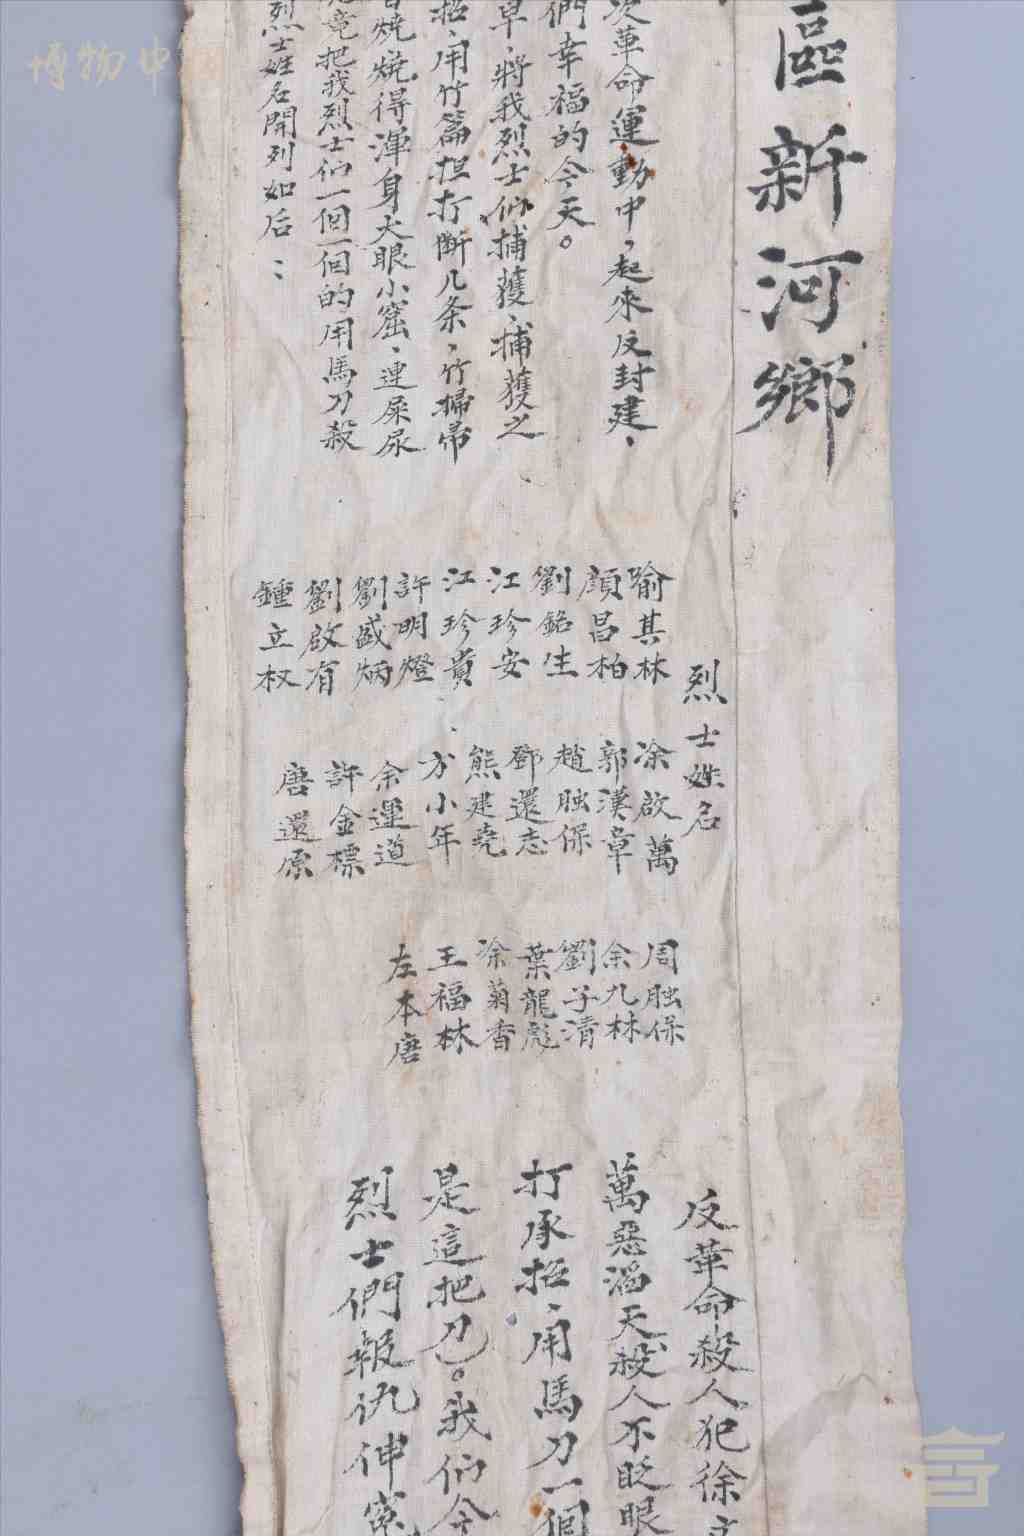 區新河鄉
次革命運動中，起來反封建、
們幸福的今天。
早，將我烈士们捕獲，捕獲之
招，用竹篇担打断几条，竹掃帚
燒，燒得渾身大眼小窟，連屎尿
竟把我烈士们一個一個的用馬刀殺
烈士姓名開列如后：
烈士姓名
喻其林
顔昌柏
劉銘生
江珍安
江珍貴
許明燈
劉盛炳
劉啟有
鍾立权
凃啟萬
郭漢章
趙膉保
鄧還志
熊建堯
方小年
余運道
許金標
唐還原
周膉保
余九林
劉子清
葉龍彪
凃菊香
王福林
左本唐
反革命殺人犯徐
萬惡滔天，殺人不眨眼
打承招，用馬刀一個
是這把刀。我们今
烈士們報仇伸冤
博物中